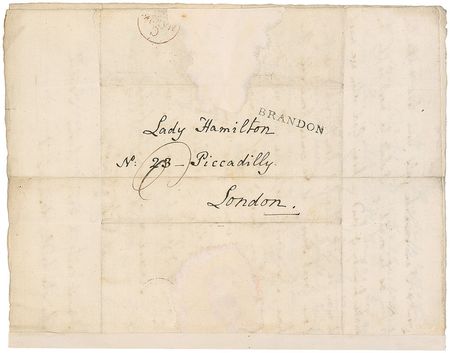 BRANDON
Lady Hamilton
No: 23 Piccadilly.
London.